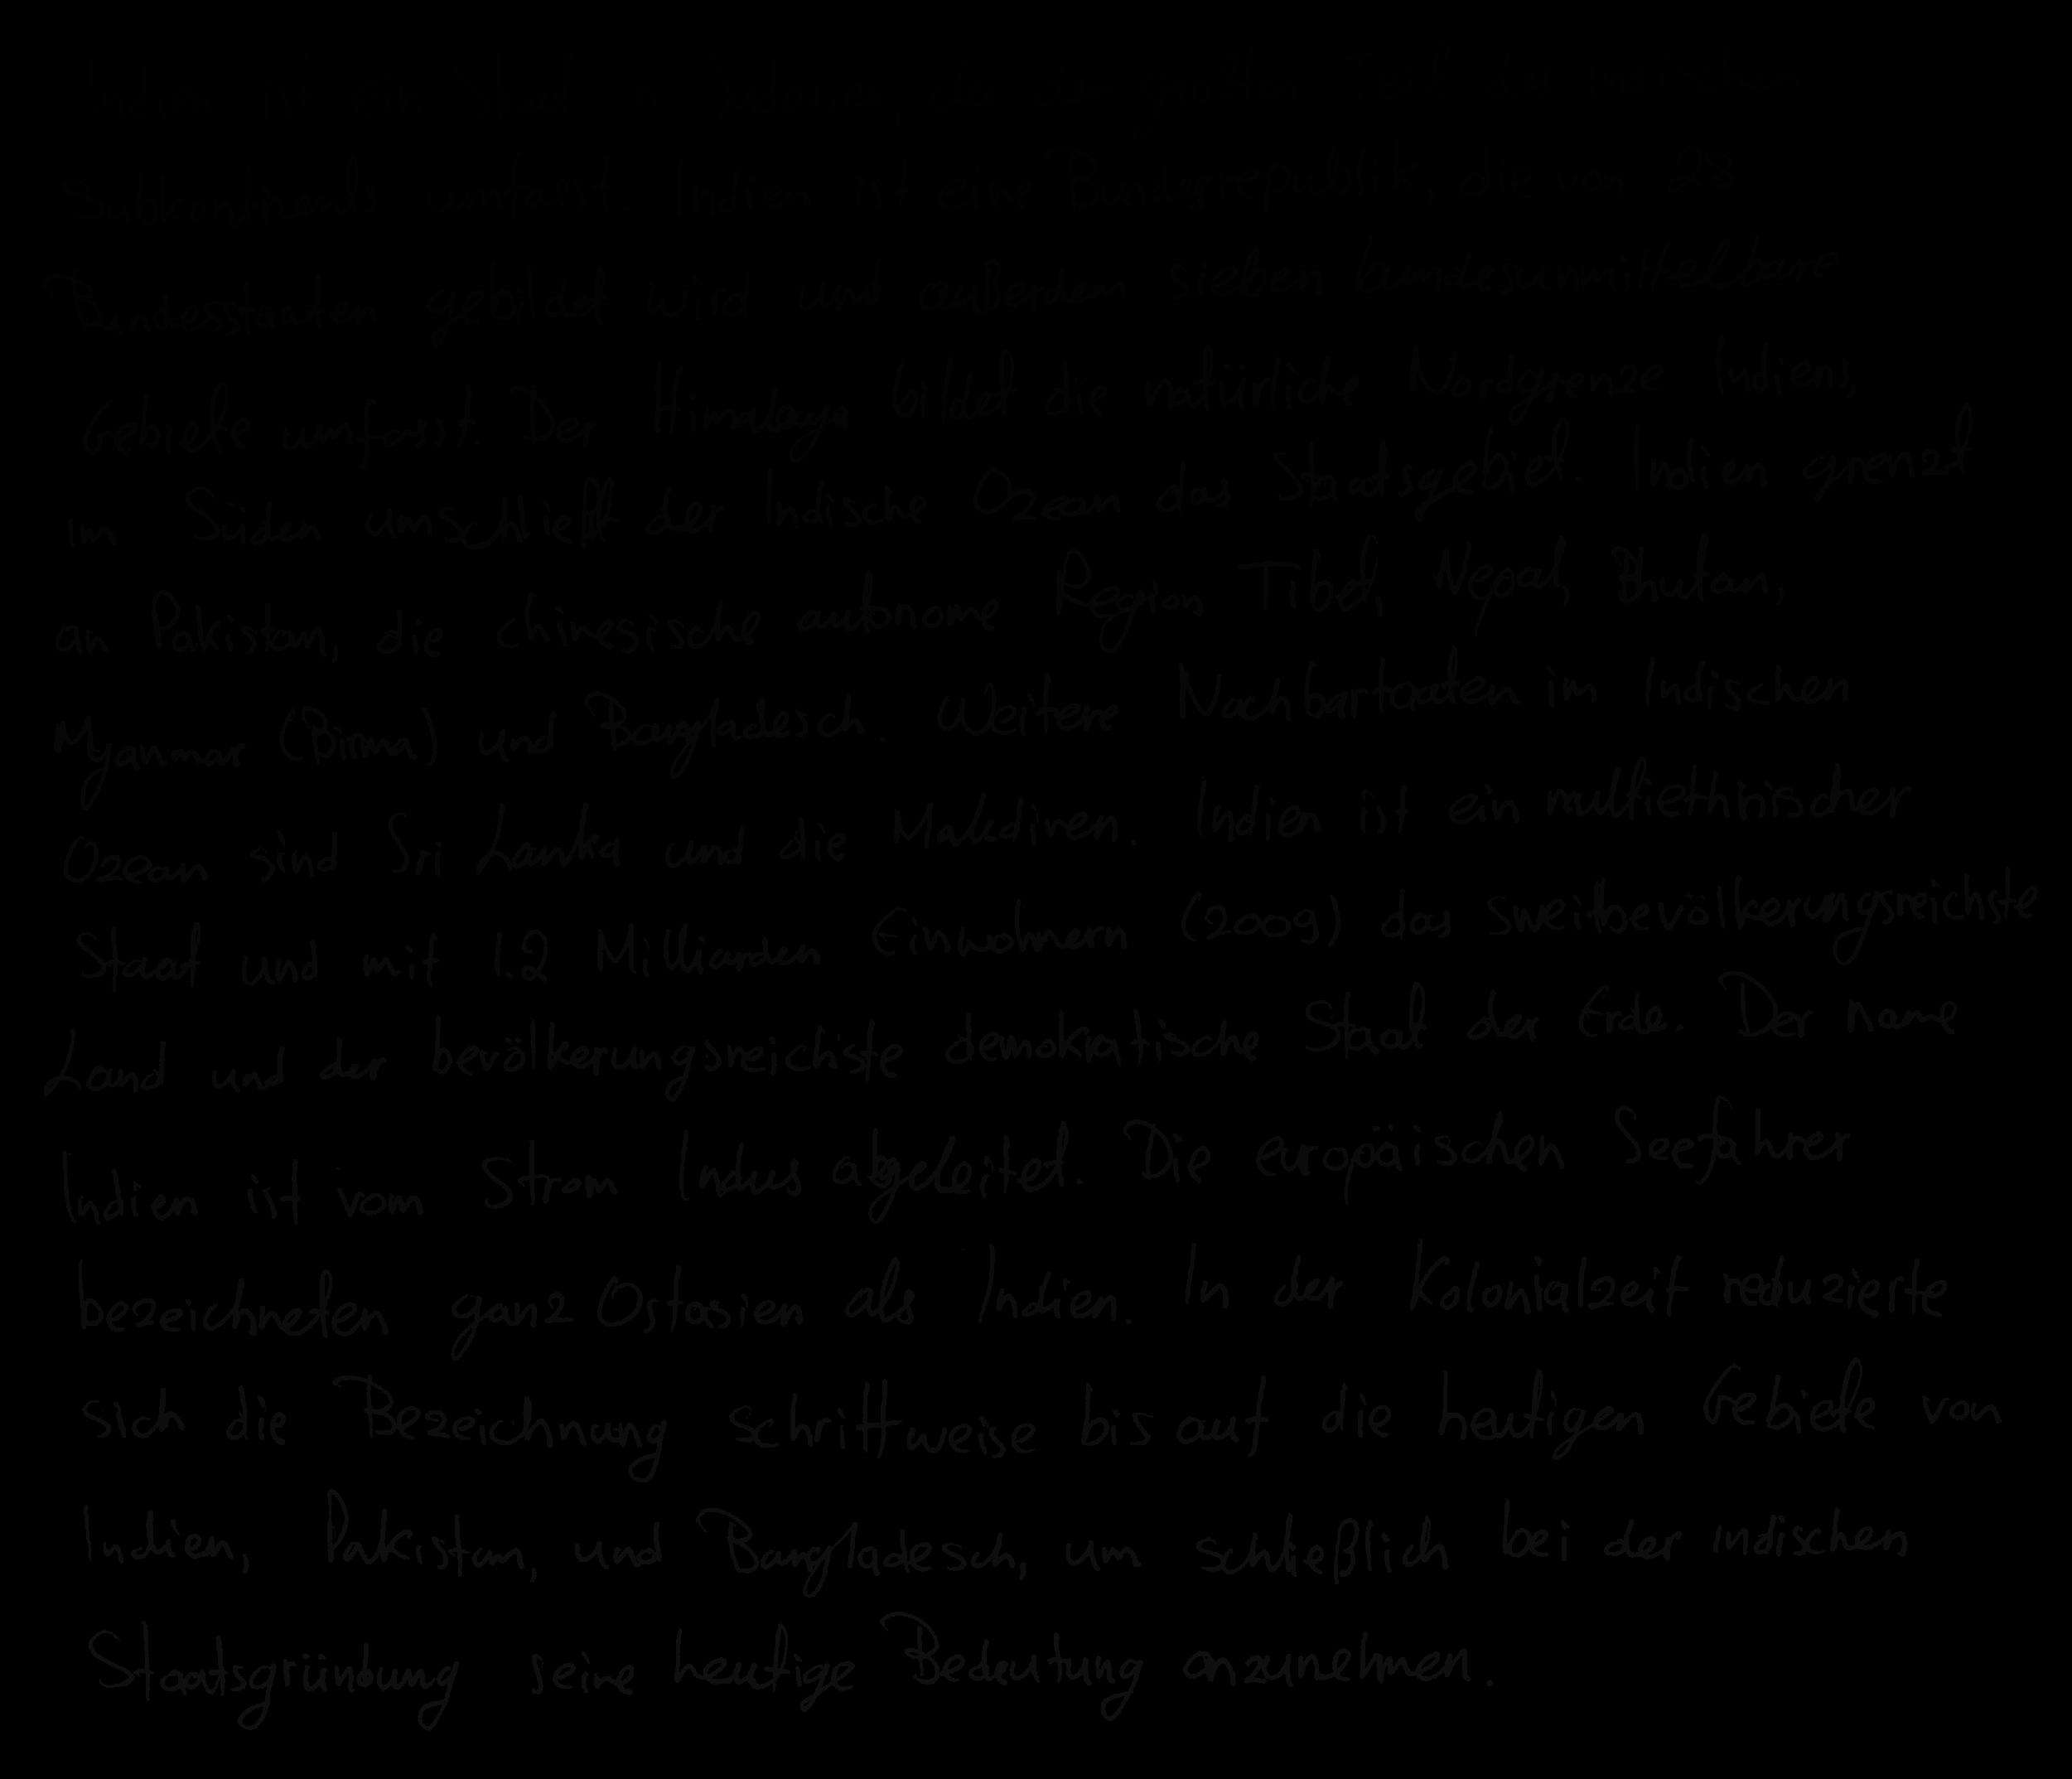 Indien ist ein Staat in Südasien, der den größten Teil des indischen
Subkontinents umfasst Indien ist eine Bundesrepublik, die von 28
Bundesstaaten gebildet wird und außerdem sieben bundesunmittelbare
Gebiete umfasst. Der Himalaya bildet die natürliche Nordgrenze Indiens,
im Süden umschließt der Indische Ozean das Staatsgebiet. Indien grenzt
an Pakistan, die chinesische autonome Region Tibet, Nepal, Bhutan,
Myanmar (Birma) und Bangladesch. Weitere Nachbartaaten im Indischen
Ozean sind Sri Lanka und die Malediven. Indien ist ein multiethnischer
Staat und mit 1.2 Milliarden Einwohnern (2009) das sweitbevölkerungsreichste
Land und der bevölkerungsreichste demokratische Staat der Erde. Der name
Indien ist vom Strom Indus abgeleitet. Die europäischen Seefahrer
bezeichneten ganz Ostasien als Indien. In der Kolonialzeit reduzierte
sich die Bezeichnung schrittweise bis auf die heutigen Gebiete von
Indien, Pakistan, und Bangladesch, um schließlich bei der indischen
Staatsgründung seine heutige Bedeutung anzunehmen.